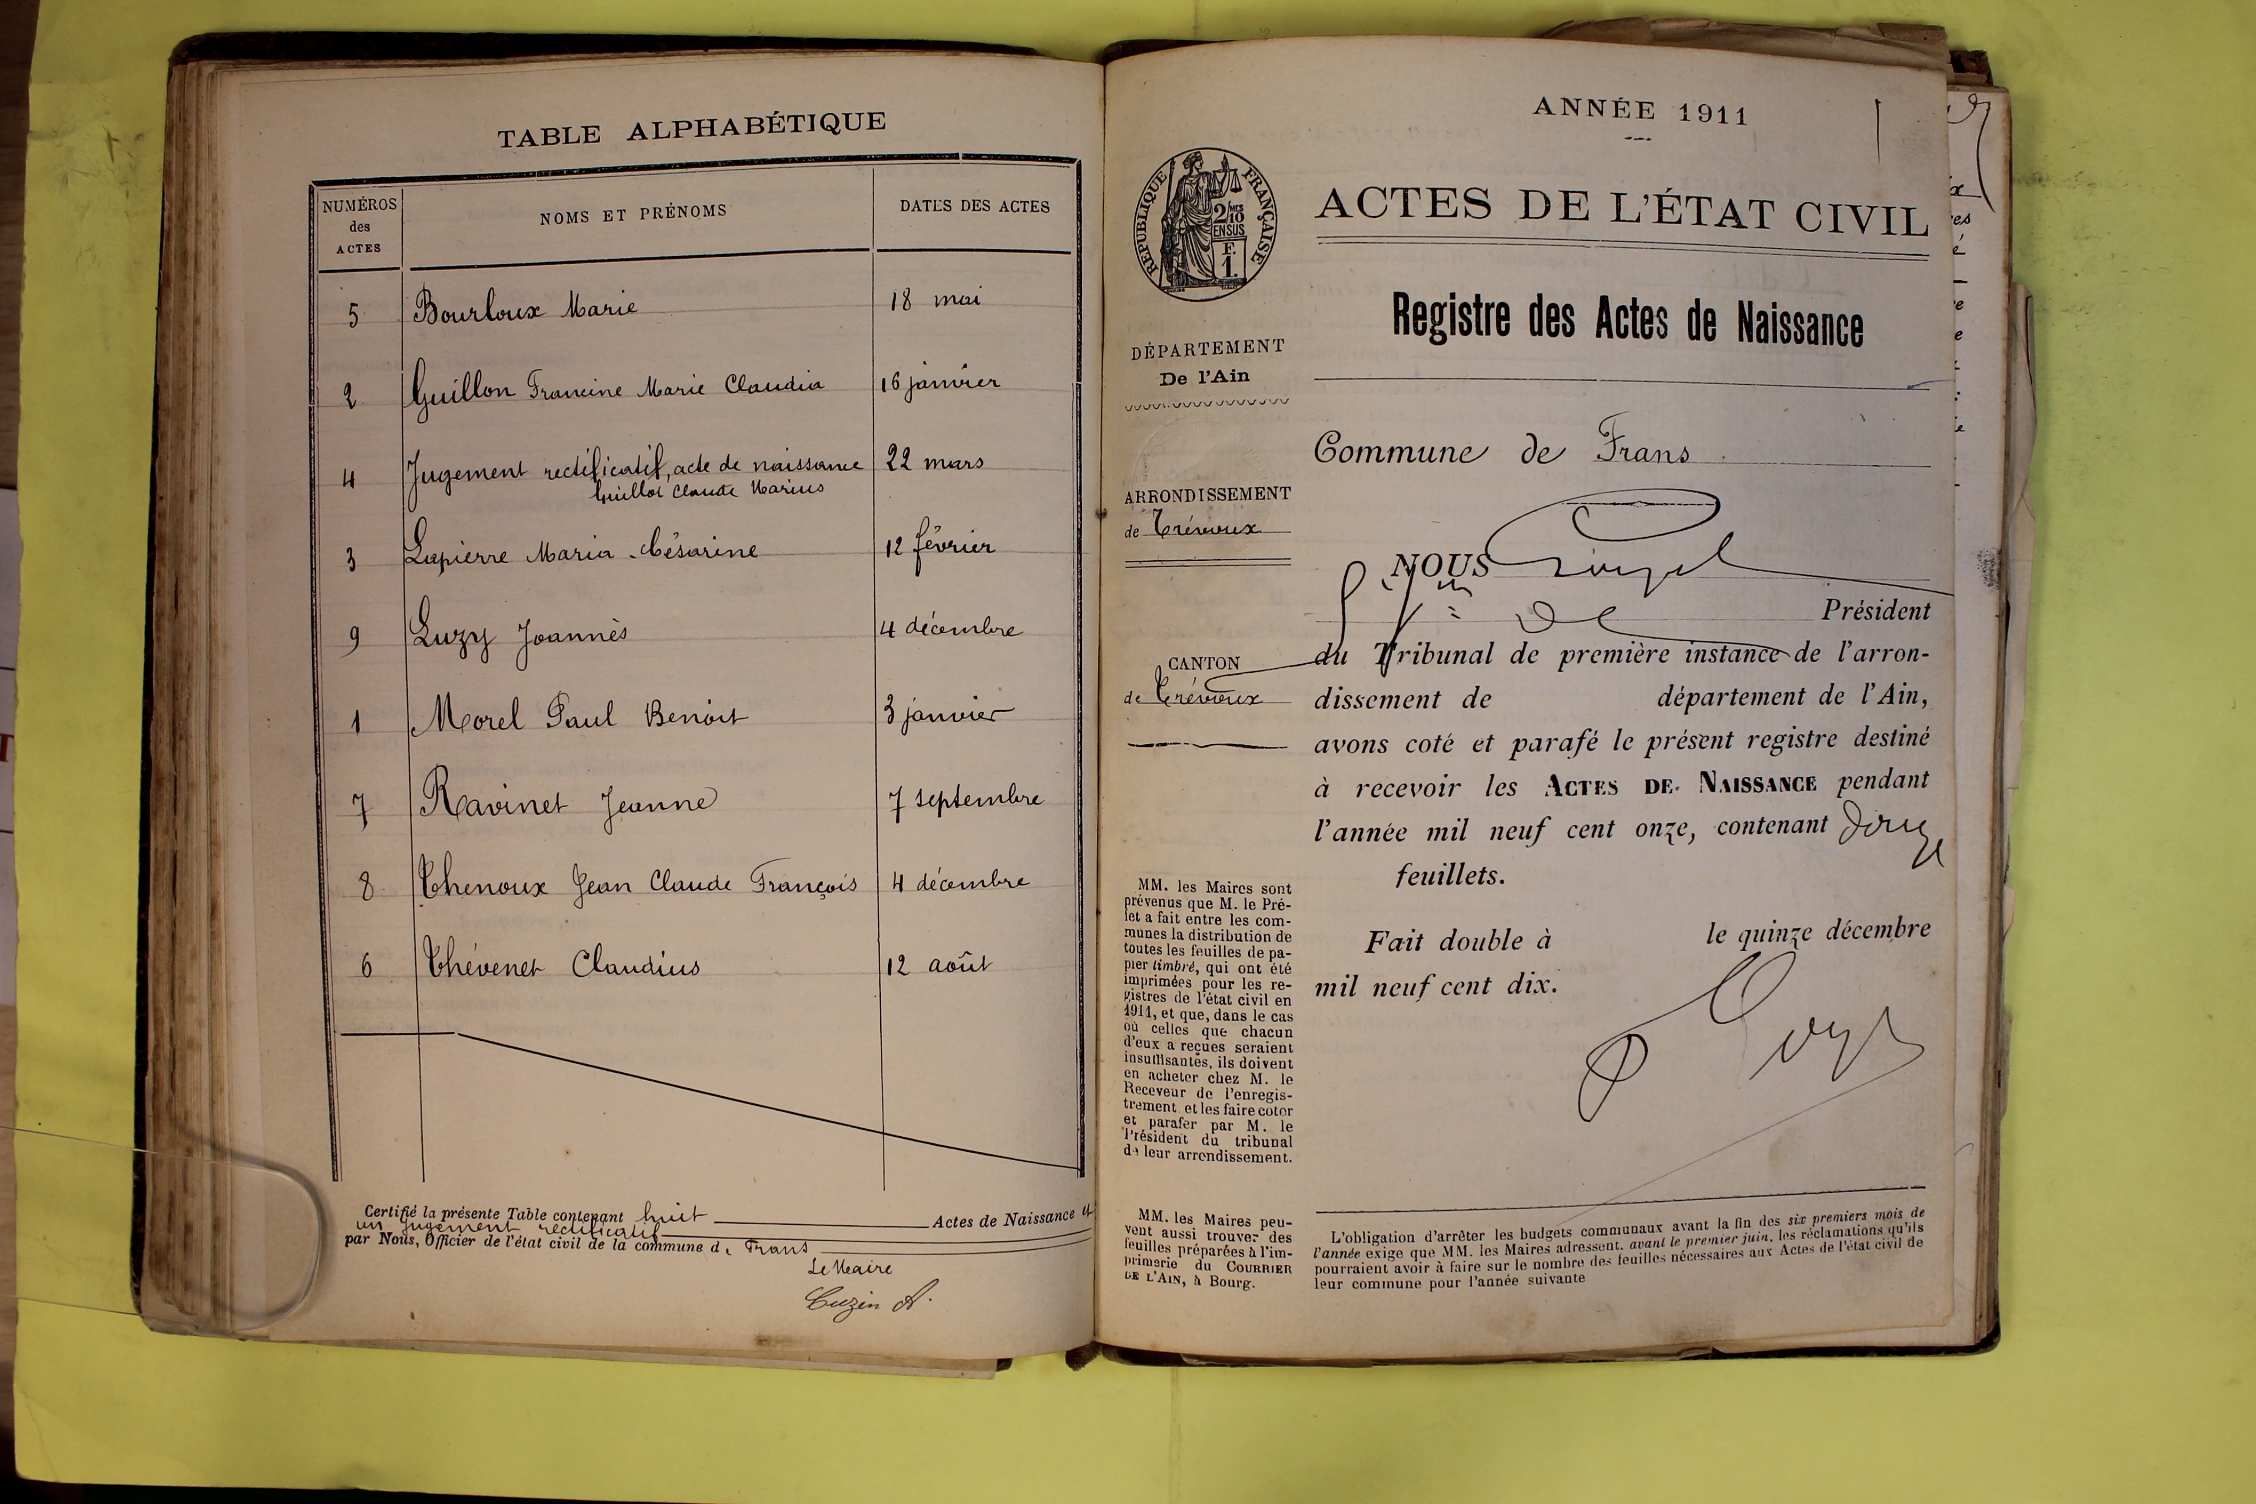 TABLE ALPHABÉTIQUE
NUMÉROS des ACTES
NOMS ET PRÉNOMS
DATES DES ACTES
5 Bourloux Marie 18 mai
2 Guillon Francine Marie Claudia 16 janvier
4 Jugement rectificatif, acte de naissance 22 mars
Guillot Claude Marius
3 Lapierre Maria Césarine 12 février
9 Luzy Joannès 4 décembre
1 Morel Paul Benoit 3 janvier
7 Ravinet Jeanne 7 septembre
8 Thenoux Jean Claude François 4 décembre
6 Thévenet Claudius 12 août
Certifié la présente Table contenant huit Actes de Naissance et
un jugement rectificatif
par Nous, Officier de l'état civil de la commune de Frans
Le Maire
Cuzin A.
ANNÉE 1911
RÉPUBLIQUE FRANÇAISE
2/10 MES
EN SUS
F.
1.
DÉPARTEMENT
De l'Ain
ARRONDISSEMENT
de Trévoux
CANTON
de Trévoux
MM. les Maires sont
prévenus que M. le Pré-
fet a fait entre les com-
munes la distribution de
toutes les feuilles de pa-
pier timbré, qui ont été
imprimées pour les re-
gistres de l'état civil en
1911, et que, dans le cas
où celles que chacun
d'eux a reçues seraient
insuffisantes, ils doivent
en acheter chez M. le
Receveur de l'enregis-
trement et les faire coter
et parafer par M. le
Président du tribunal
de leur arrondissement.
MM. les Maires peu-
vent aussi trouver des
feuilles préparées à l'im-
primerie du COURRIER
DE L'AIN, à Bourg.
ACTES DE L'ÉTAT CIVIL
Registre des Actes de Naissance
Commune de Frans
NOUS
Président
du Tribunal de première instance de l'arron-
dissement de département de l'Ain,
avons coté et parafé le présent registre destiné
à recevoir les ACTES DE NAISSANCE pendant
l'année mil neuf cent onze, contenant douze
feuillets.
Fait double à le quinze décembre
mil neuf cent dix.
L'obligation d'arrêter les budgets communaux avant la fin des six premiers mois de
l'année exige que MM. les Maires adressent, avant le premier juin, les réclamations qu'ils
pourraient avoir à faire sur le nombre des feuilles nécessaires aux Actes de l'état civil de
leur commune pour l'année suivante